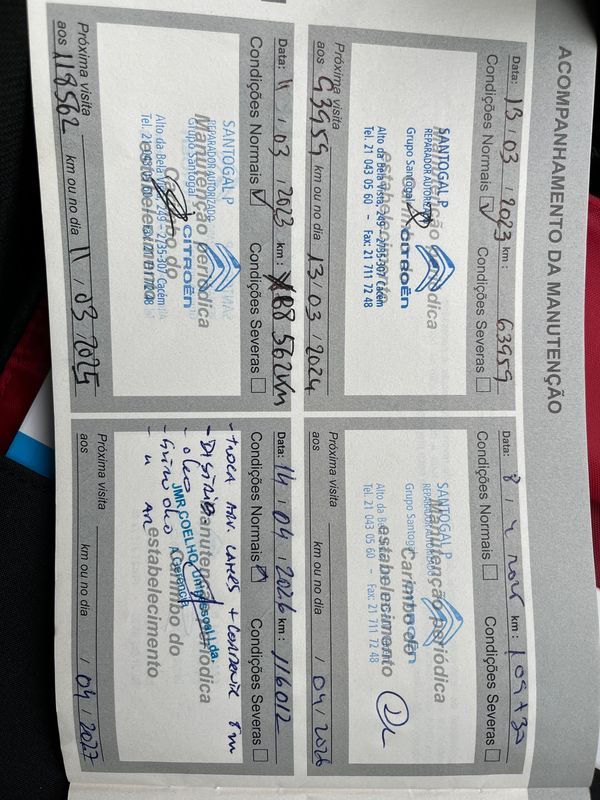 ACOMPANHAMENTO DA MANUTENÇÃO
Data: 13 / 03 / 2023 km: 63959
Condições Normais ☑ Condições Severas ☐
Manutenção periódica
Carimbo do
estabelecimento
SANTOGAL P
REPARADOR AUTORIZADO
Grupo Santogal CITROËN
Alto da Bela Vista 249 - 2735-307 Cacém
Tel. 21 043 05 60 - Fax: 21 711 72 48
Próxima visita
aos 93959 km ou no dia 13 / 03 / 2024
Data: 8 / 4 km:
Condições Normais ☐ Condições Severas ☐
Manutenção periódica
Carimbo do
estabelecimento
SANTOGAL P
REPARADOR AUTORIZADO
Grupo Santogal
Alto da Bela
Tel. 21 043 05 60 - Fax: 21 711 72 48
Próxima visita
aos km ou no dia / 04 / 2026
Data: 11 / 03 / 2023 km: 88562 km
Condições Normais ☑ Condições Severas ☐
Manutenção periódica
Carimbo do
estabelecimento
SANTOGAL P
REPARADOR AUTORIZADO
Grupo Santogal CITROËN
Alto da Bela Vista 249 - 2735-307 Cacém
Próxima visita
aos 118562 km ou no dia 11 / 03 / 2025
Data: 14 / 04 / 2026 km: 116012
Condições Normais ☑ Condições Severas ☐
- troca
- oleo
Manutenção periódica
Carimbo do
estabelecimento
JMP COELHO Unipessoal Lda.
A Gerência
Próxima visita
aos km ou no dia / 04 / 2027